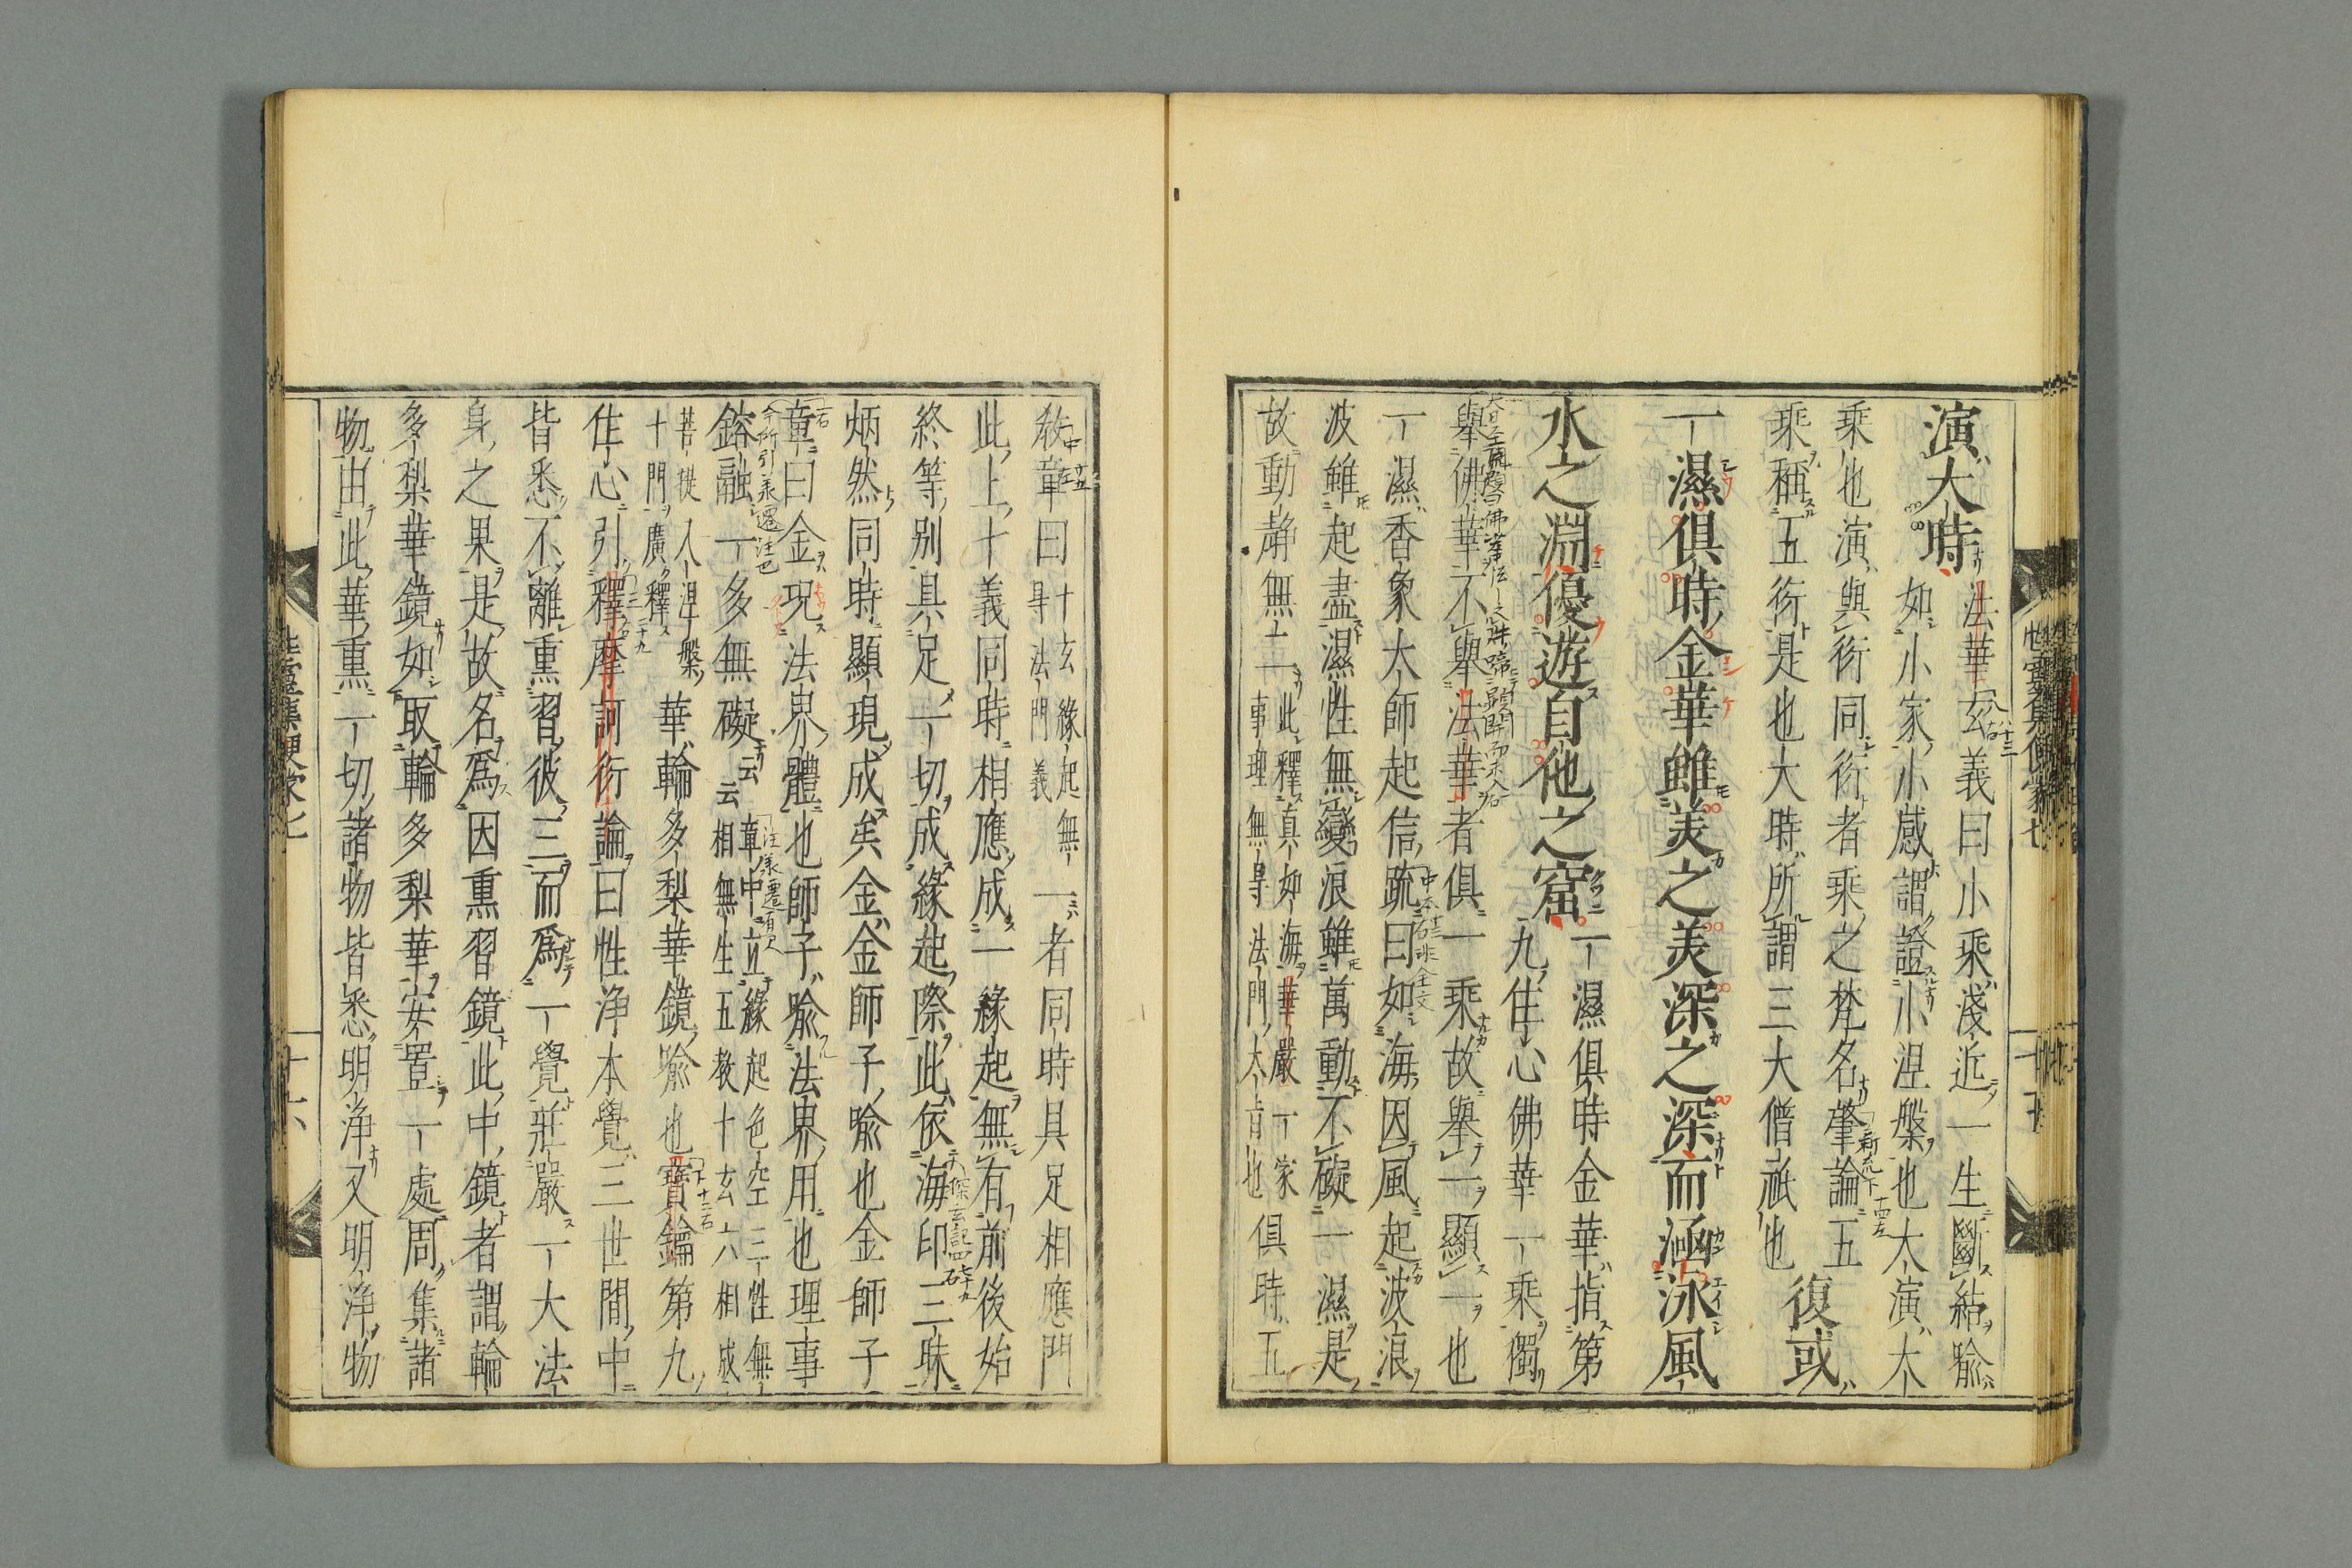 演大時法華玄義曰小乘淺近一生斷結喩
如小家小感謂證小涅槃也大演大
乘也演與衍同衍者乘之梵名肇論五
乘稱五衍是也大時所謂三大僧祇也復或
一濕俱時金華雖美之美深之深而涵泳風
水之淵優遊自他之窟一濕俱時金華指第
九住心佛華一乘獨
擧佛華不擧法華者俱一乘故擧一顯一也
一濕香象大師起信疏曰如海因風起波浪
波雖起盡濕性無變浪雖萬動不礙一濕是
故動靜無二一此釋眞如海華嚴一家
事理無导法門大旨也俱時五
敎章曰十玄緣起無
导法門義一者同時具足相應門
此上十義同時相應成一緣起無有前後始
終等別具足一切成緣起際此依海印三昧
炳然同時顯現成矣金金師子喩也金師子
章曰金況法界體也師子喩法界用也理事
鎔融一多無礙云云章中立緣起色空三性無
相無生五敎十玄六相成
菩提入涅槃
十門廣釋華輪多梨華鏡喩也寶鑰第九
住心引釋摩訶衍論曰性淨本覺三世間中
皆悉不離熏習彼三而爲一覺莊嚴一大法
身之果是故名爲因熏習鏡此中鏡者謂輪
多梨華鏡如取輪多梨華安置一處周集諸
物由此華熏一切諸物皆悉明淨又明淨物